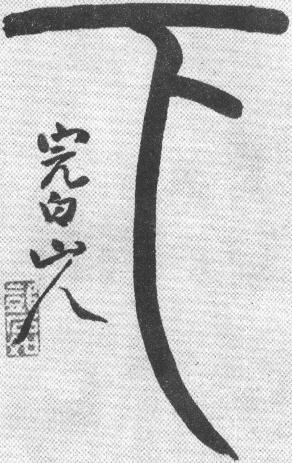 下
完白山人